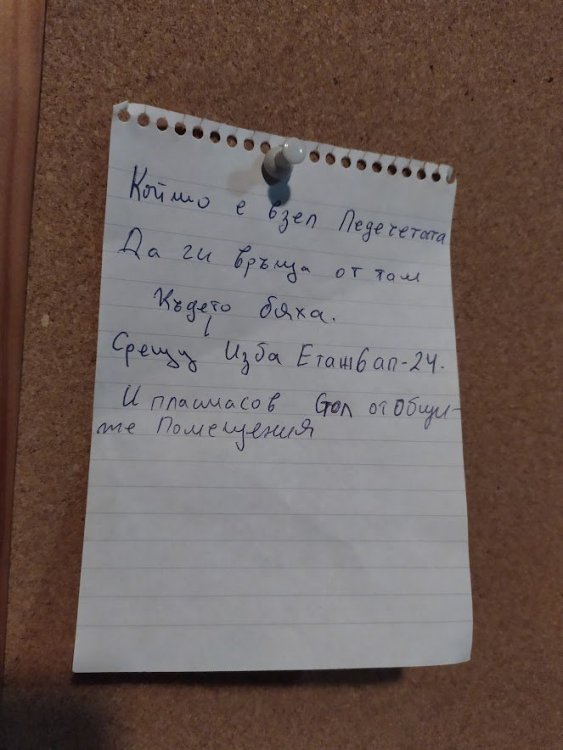 Който е взел Педечетата
Да ги връща от там
Където бяха.
Срещу Изба Етаж6 ап-24.
И пластмасов Стол от Общи-
те Помещения